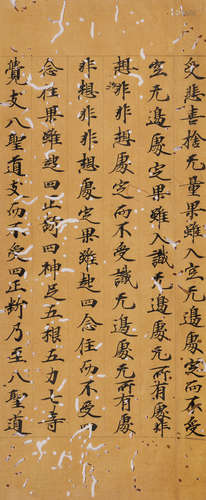 受悲喜捨无量果雖入空无邊處定而不受
空无邊處定果雖入識无邊處无所有處非
想非非想處定而不受識无邊處无所有處
非想非非想處定果雖起四念住而不受四
念住果雖起四正斷四神足五根五力七等
覺支八聖道支而不受四正斷乃至八聖道